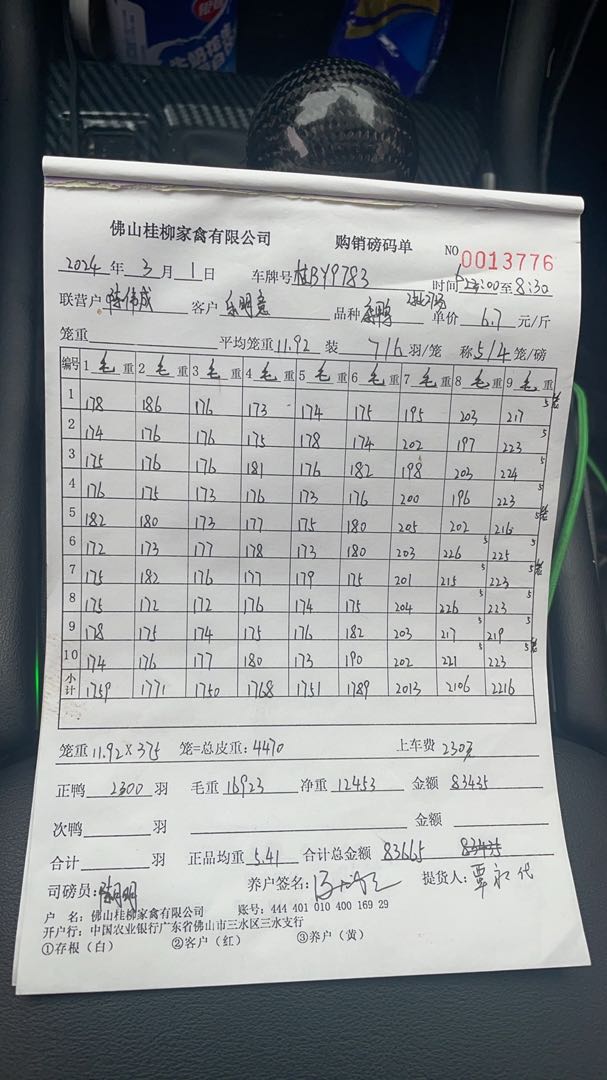 佛山桂柳家禽有限公司 购销磅码单 NO 0013776
2024 年 3 月 1 日 车牌号 桂BY9783 时间 :00 至 8:30
联营户 陈伟成 客户 品种 单价 6.7 元/斤
笼重 平均笼重 11.92 装 7/6 羽/笼 称 5/4 笼/磅
编号 1 毛 重 2 毛 重 3 毛 重 4 毛 重 5 毛 重 6 毛 重 7 毛 重 8 毛 重 9 毛 重
1 178 186 176 173 174 175 195 203 217 5笼
2 174 176 176 175 178 174 202 197 223 5
3 175 176 176 181 176 182 198 203 224 5
4 176 175 173 176 173 176 200 196 223 5
5 182 180 173 177 175 180 205 202 216 5笼
6 172 173 177 178 173 180 203 226 5 225 5
7 175 182 176 177 179 175 201 215 5 223 5笼
8 175 172 172 176 174 175 204 226 5 223 5
9 178 175 174 175 176 182 203 217 5 219 5
10 174 176 177 180 173 190 202 221 5 223 5笼
小计 1759 1771 1750 1768 1751 1789 2013 2106 2216
笼重 11.92×375 笼=总皮重: 4470 上车费 230元
正鸭 2300 羽 毛重 16923 净重 12453 金额 83435
次鸭 羽 金额
合计 羽 正品均重 5.41 合计总金额 83665 83435
司磅员: 养户签名: 提货人: 覃
户 名: 佛山桂柳家禽有限公司 账号: 444 401 010 400 169 29
开户行: 中国农业银行广东省佛山市三水区三水支行
①存根（白） ②客户（红） ③养户（黄）